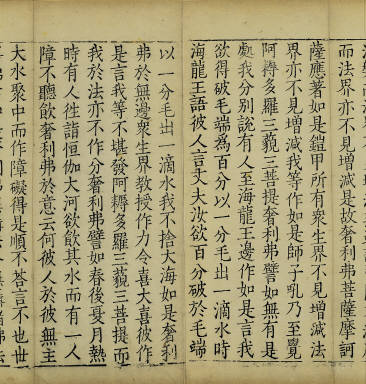 而法界亦不見增減是故奢利弗菩薩摩訶
薩應著如是鎧甲所有衆生界不見增減法
界亦不見增減我等作如是師子吼乃至覺
阿耨多羅三藐三菩提奢利弗譬如無有是
處我分別說有人至海龍王邊作如是言我
欲得破毛端爲百分以一分毛出一滴水時
海龍王語彼人言丈夫汝欲百分破於毛端
以一分毛出一滴水我不捨大海如是奢利
弗於無邊衆生界教授作力令喜大喜彼作
是言我等不堪發阿耨多羅三藐三菩提而
我於法亦不作分奢利弗譬如春後夏月熱
時有人徃詣恒伽大河欲飲其水而有一人
障不聽飲奢利弗於意云何彼人於彼無主
大水聚中而作障礙得是順不荅言不也世